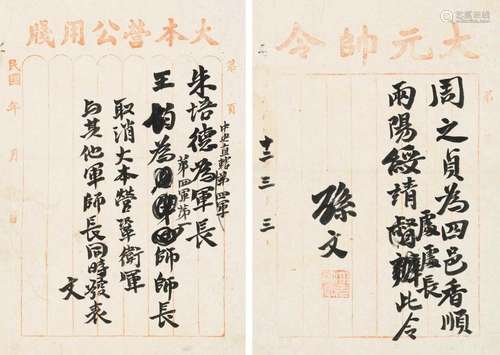 大元帥令
周之貞為四邑香順
兩陽綏靖督辦
處處長
此令
孫文
十二 三 三
大本營公用牋
第 頁
朱培德為軍長
中央直轄第四軍
王均為
師師長
第四軍第
取消大本營鞏衛軍
与其他軍師長同時發表
文
民國 年 月 日